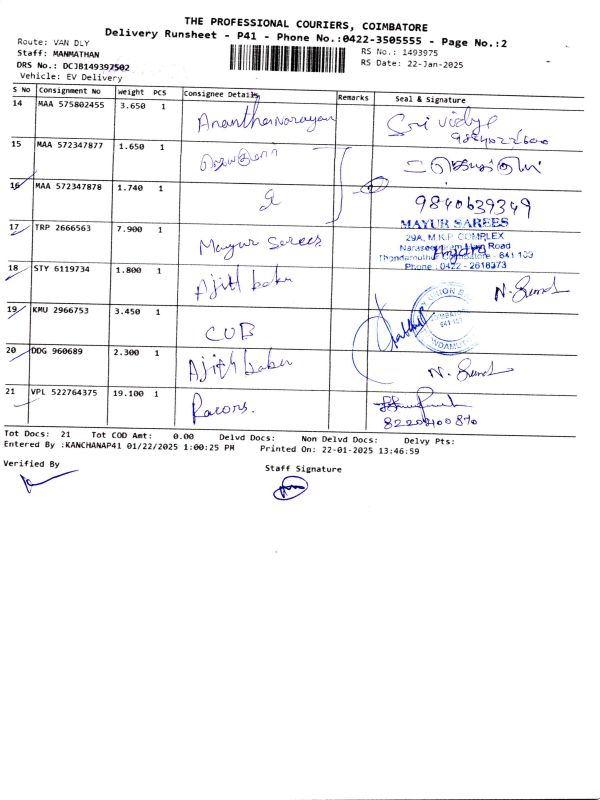 THE PROFESSIONAL COURIERS, COIMBATORE
Delivery Runsheet - P41 - Phone No.:0422-3505555 - Page No.:2
Route: VAN DLY
RS No.: 1493975
Staff: MANMATHAN
RS Date: 22-Jan-2025
DRS No.: DCJB149397502
Vehicle: EV Delivery
S No Consignment No Weight PCS Consignee Details Remarks Seal & Signature
14 MAA 575802455 3.650 1 Ananthanarayan Sri Vidya
15 MAA 572347877 1.650 1
16 MAA 572347878 1.740 1 9840639349
17 TRP 2666563 7.900 1 Mayur Sarees
MAYUR SAREES
29A, M.K.P. COMPLEX
Narasegipuram Main Road
Thondamuthur, Coimbatore - 641 109
Phone : 0422 - 2618373
18 STY 6119734 1.800 1 Ajith baker
19 KMU 2966753 3.450 1 CUB
20 DDG 960689 2.300 1 Ajith baker
21 VPL 522764375 19.100 1
Tot Docs: 21 Tot COD Amt: 0.00 Delvd Docs: Non Delvd Docs: Delvy Pts:
Entered By :KANCHANAP41 01/22/2025 1:00:25 PM Printed On: 22-01-2025 13:46:59
Verified By
Staff Signature